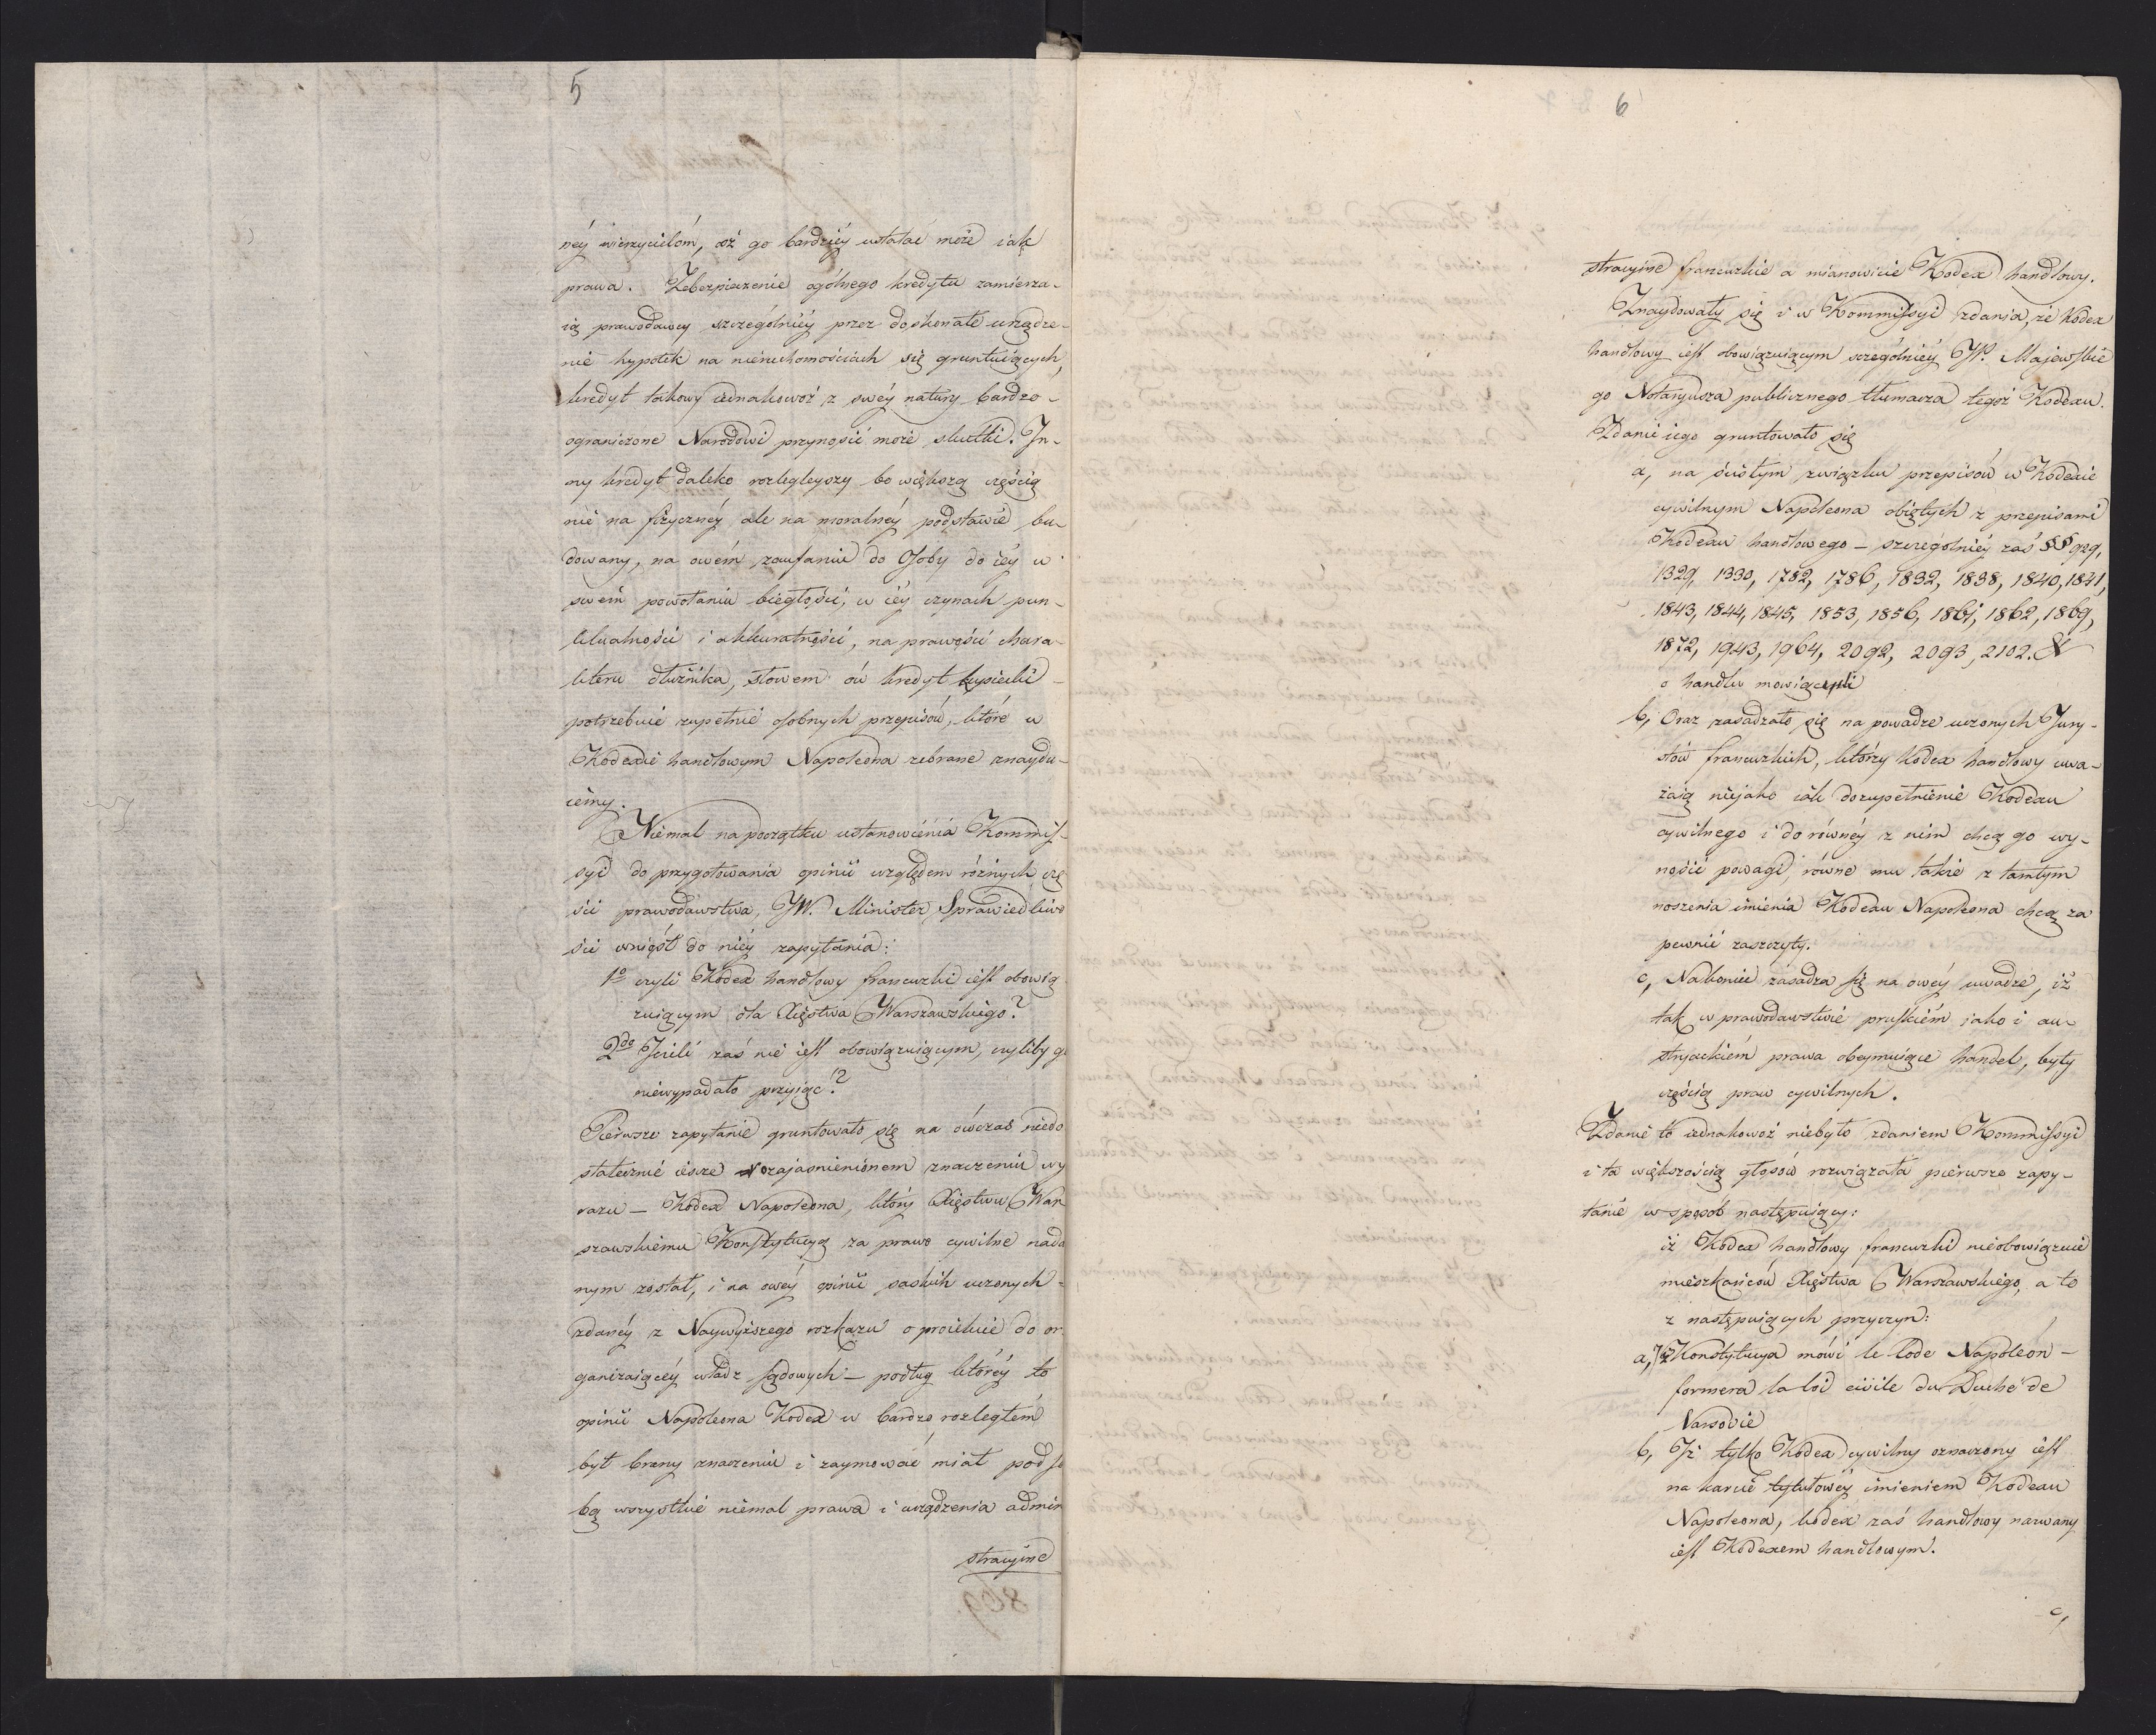 5
ney wierzycielóm, niż go bardziéy ustalać może iak
prawa. Zabezpieczenie ogólnego kredytu zamierza-
ią prawodawcy szczególniéy przez doskonałe urządze-
nie hypotek na nieruchomościach się gruntuiących,
kredyt takowy iednakowoż z swéy natury bardzo-
ograniczone Narodowi przynosić może skutki. In-
ny kredyt daleko rozlegleyszy bo większą częścią
nie na fizycznéy ale na moralnéy podstawie bu-
dowany, na owém zaufaniu do Osoby do iéy w
swém powołaniu biegłości, w iéy czynach pun-
ktualności i akkuratności, na prawości chara-
kteru dłużnika, słowem ów kredyt kupiecki
potrzebuie zupełnie osobnych przepisów, które w
Kodexie handlowym Napoleona zebrane znaydu-
iemy.
Niemal na początku ustanowienia Kommis-
syi do przygotowania opinii względem różnych czę
ści prawodawstwa, JW. Minister Sprawiedliwo
ści wniósł do niéy zapytania:
1o czyli Kodex handlowy francuzki iest obowią
zuiącym dla Xięstwa Warszawskiego?
2do Jeżeli zaś nie iest obowiązuiącym, czyliby g
niewypadało przyiąć?
Pierwsze zapytanie gruntowało się na ówczas niedo
statecznie iescze rozajasnieniónem znaczeniu wy
razu — Kodex Napoleona, który Xięstwu War
szawskiemu Konstytucyą za prawo cywilne nada
nym został, i na owéy opinii saskich uczonych
zdanéy z Naywyższego rozkazu o proiekcie do or
ganizaiącéy władz sądowych — podług któréy to
opinii Napoleona Kodex w bardzo rozległém
był brany znaczeniu i zaymować miał pod so
bą wszystkie niemal prawa i urządzenia admin
stracyine
6
stracyine francuzkie a mianowicie Kodex handlowy.
Znaydowały się i w Kommissyi zdania, że Kodex
handlowy iest obowiązuiącym sczególniéy JP. Majewskie
go Notaryusza publicznego tłumacza tegoż Kodexu.
Zdanie iego gruntowało się
a, na ścisłym związku przepisów w Kodexie
cywilnym Napoleona obiętych z przepisami
Kodexu handlowego — szczególniéy zaś §§ 929,
1329, 1330, 1782, 1786, 1832, 1838, 1840, 1841,
1843, 1844, 1845, 1853, 1856, 1861, 1862, 1869,
1872, 1943, 1964, 2092, 2093, 2102. &
o handlu mowiącymi
b, Oraz zasadzało się na powadze uczonych Jury-
stów francuzkich, którzy Kodex handlowy uwa-
żaią niejako iak dozupełnienie Kodexu
cywilnego i do równéy z nim chcą go wy-
nosić powagi, równe mu także z tamtym
noszenia imienia Kodexu Napoleona chcą za
pewnić zaszczyty.
c, Nakoniec zasadza się na owéy uwadze, iż
tak w prawodawstwie pruskiém iako i au-
stryackiém prawa obeymuiące handel, były
częścią praw cywilnych.
Zdanie to iednakowoż niebyło zdaniem Kommissyi
i ta większością głosów rozwiązała pierwsze zapy-
tanie w sposób następuiący:
iż Kodex handlowy francuzki nieobowiązuie
mieszkańców Xięstwa Warszawskiego, a to
z następuiących przyczyn:
a, Iż Konstytucya mówi le Code Napoleon
formera la loi civile du Duché de
Varsovie
b, Iż tylko Kodex cywilny oznaczony iest
na karcie tytułowéy imieniem Kodexu
Napoleona, kodex zaś handlowy nazwany
iest Kodexem handlowym.
c,